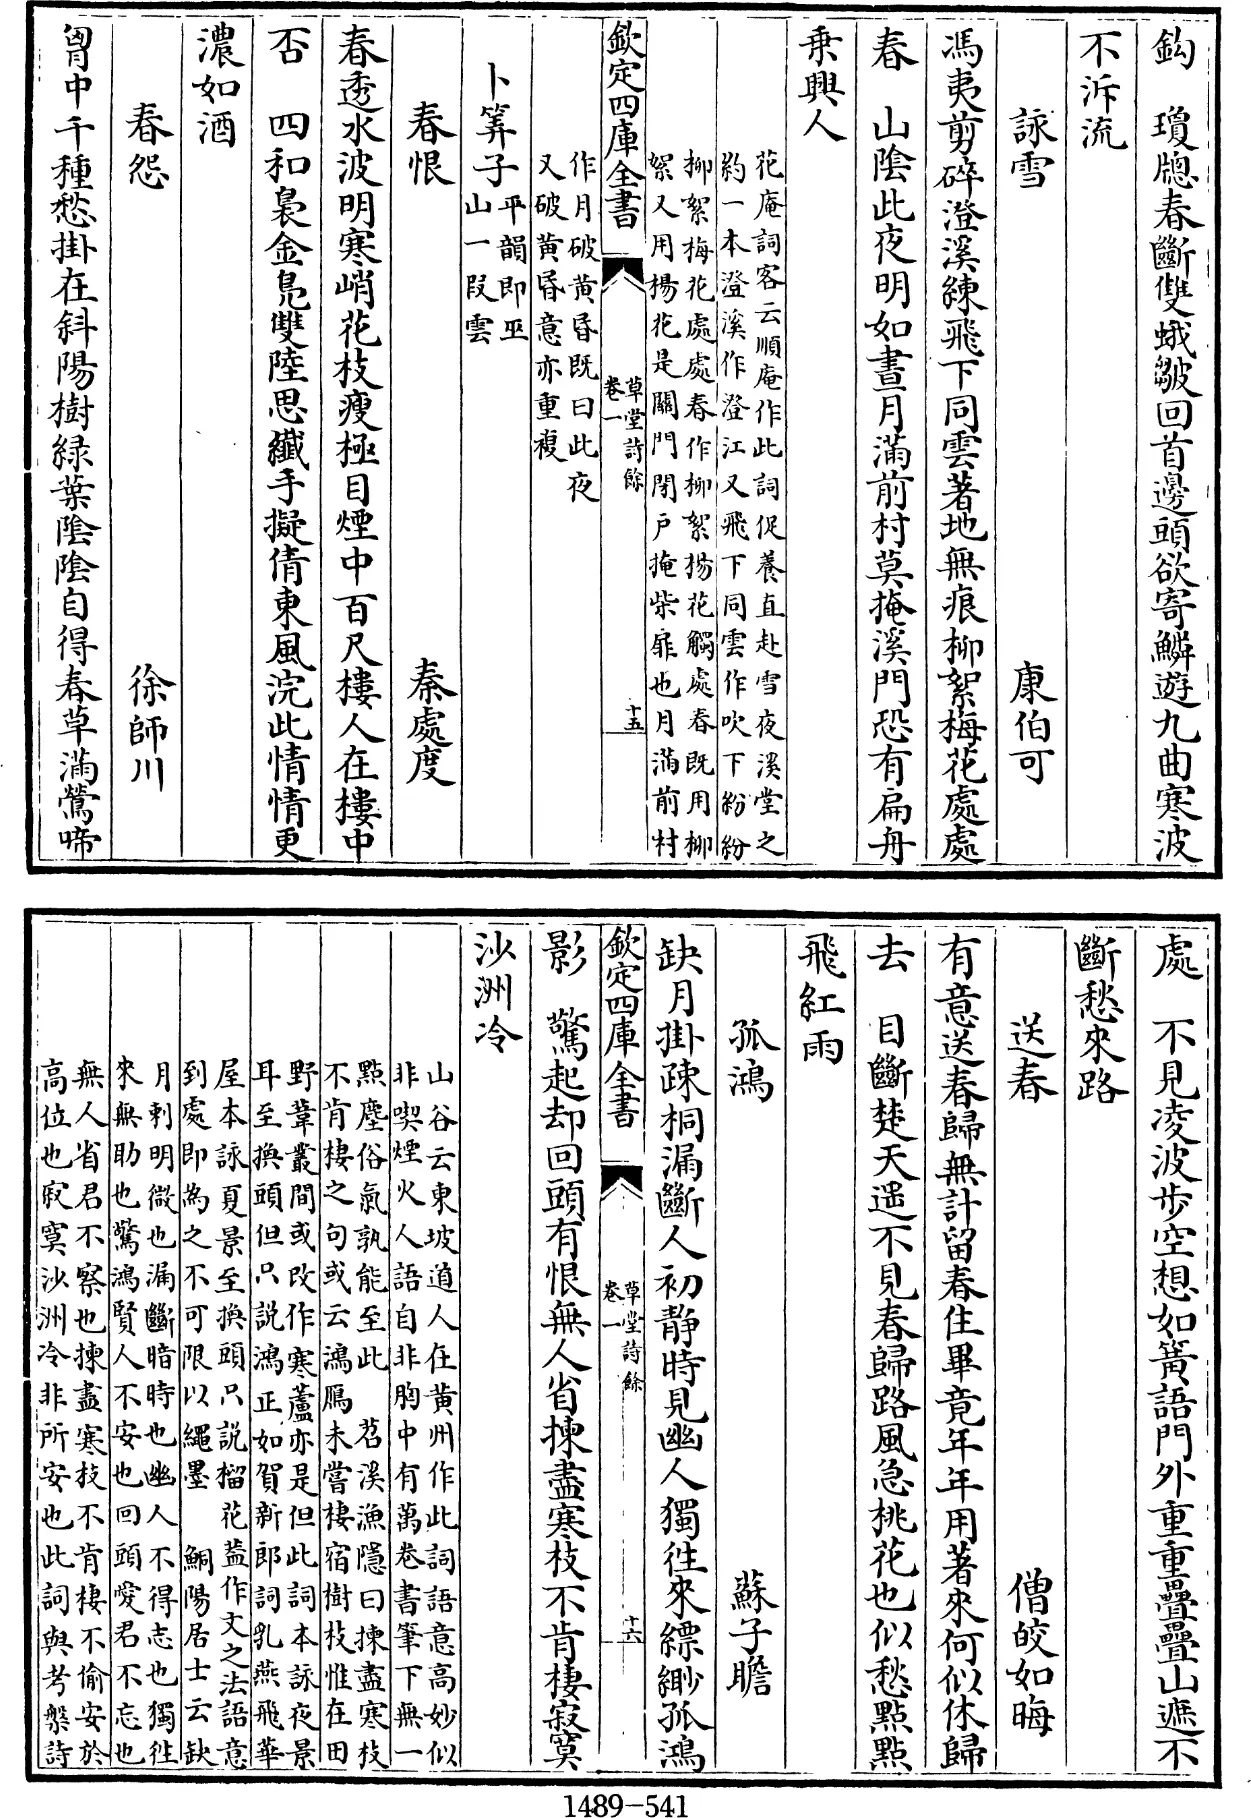 鈎　瓊牕春斷雙蛾皺回首邊頭欲寄鱗遊九曲寒波
不泝流
詠雪　康伯可
馮夷剪碎澄溪練飛下同雲著地無痕柳絮梅花處處
春　山陰此夜明如晝月滿前村莫掩溪門恐有扁舟
乗興人
花庵詞客云順庵作此詞促養直赴雪夜溪堂之
約一本澄溪作澄江又飛下同雲作吹下紛紛
柳絮梅花處處春作柳絮楊花觸處春既用柳
絮又用楊花是關門閉户掩柴扉也月滿前村
欽定四庫全書
草堂詩餘
卷一
十五
作月破黄昏既曰此夜
又破黄昏意亦重複
卜筭子
平韻即巫
山一叚雲
春恨　秦處度
春透水波明寒峭花枝瘦極目煙中百尺樓人在樓中
否　四和裊金鳬雙陸思纖手擬倩東風浣此情情更
濃如酒
春怨　徐師川
胷中千種愁掛在斜陽樹緑葉陰陰自得春草滿鶯啼
處　不見凌波步空想如簧語門外重重疊疊山遮不
斷愁來路
送春　僧皎如晦
有意送春歸無計留春住畢竟年年用著來何似休歸
去　目斷楚天遥不見春歸路風急桃花也似愁點點
飛紅雨
孤鴻　蘇子瞻
缺月掛疎桐漏斷人初静時見幽人獨徃來縹緲孤鴻
欽定四庫全書
草堂詩餘
卷一
十六
影　驚起却回頭有恨無人省揀盡寒枝不肯棲寂寞
沙洲冷
山谷云東坡道人在黄州作此詞語意高妙似
非喫煙火人語自非胸中有萬卷書筆下無一
點塵俗氣孰能至此　苕溪漁隱曰揀盡寒枝
不肯棲之句或云鴻鴈未嘗棲宿樹枝惟在田
野葦叢間或改作寒蘆亦是但此詞本詠夜景
耳至換頭但只説鴻正如賀新郎詞乳燕飛華
屋本詠夏景至換頭只説榴花葢作文之法語意
到處即為之不可限以繩墨　鮦陽居士云缺
月刺明微也漏斷暗時也幽人不得志也獨徃
來無助也驚鴻賢人不安也回頭愛君不忘也
無人省君不察也揀盡寒枝不肯棲不偷安於
高位也寂寞沙洲冷非所安也此詞與考槃詩
1489-541